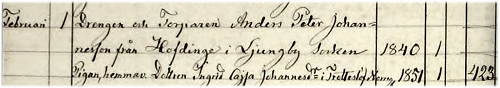 Februari 1 Drengen och Torparen Anders Peter Johan-
nesson från Hofdinge i Ljungby Socken 1840 1
Pigan, hemmav. Dottren Ingrid Cajsa Johannesdr i 1851 1 423